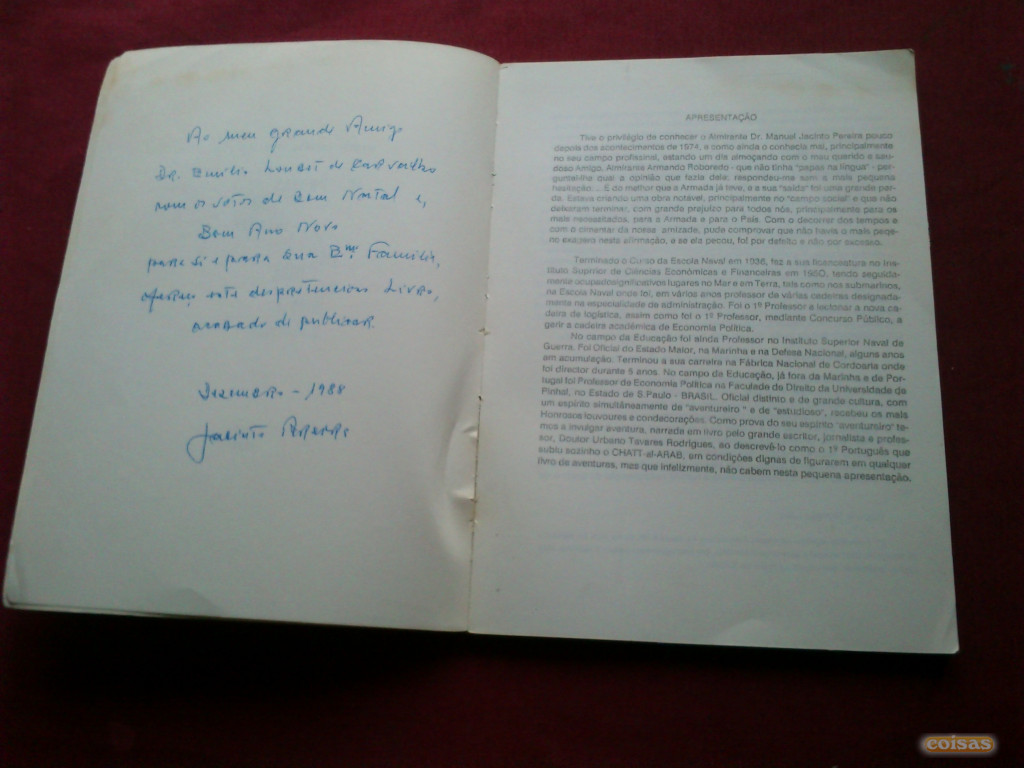 Ao meu grande Amigo
Dr. Emílio de Carvalho
com os votos de Bom Natal e,
Bom Ano Novo
para si e para sua Exmª Família,
ofereço este despretencioso Livro,
acabado de publicar.
Dezembro - 1988
Jacinto Pereira
APRESENTAÇÃO
Tive o privilégio de conhecer o Almirante Dr. Manuel Jacinto Pereira pouco
depois dos acontecimentos de 1974, e como ainda o conhecia mal, principalmente
no seu campo profissinal, estando um dia almoçando com o meu querido e sau-
doso Amigo, Almirante Armando Roboredo - que não tinha "papas na língua" -
perguntei-lhe qual a opinião que fazia dele; respondeu-me sem a mais pequena
hesitação... É do melhor que a Armada já teve, e a sua "saída" foi uma grande per-
da. Estava criando uma obra notável, principalmente no "campo social" e que não
deixaram terminar, com grande prejuízo para todos nós, principalmente para os
mais necessitados, para a Armada e para o País. Com o decorrer dos tempos e
com o cimentar da nossa amizade, pude comprovar que não havia o mais peque-
no exagero nesta afirmação, e se ela pecou, foi por defeito e não por excesso.
Terminado o Curso da Escola Naval em 1936, fez a sua licenciatura no Ins-
tituto Superior de Ciências Económicas e Financeiras em 1950, tendo seguida-
mente ocupado significativos lugares no Mar e em Terra, tais como nos submarinos,
na Escola Naval onde foi, em vários anos professor de várias cadeiras designada-
mente na especialidade de administração. Foi o 1º Professor a lectonar a nova ca-
deira de logística, assim como foi o 1º Professor, mediante Concurso Público, a
gerir a cadeira académica de Economia Política.
No campo da Educação foi ainda Professor no Instituto Superior Naval de
Guerra. Foi Oficial do Estado Maior, na Marinha e na Defesa Nacional, alguns anos
em acumulação. Terminou a sua carreira na Fábrica Nacional de Cordoaria onde
foi director durante 5 anos. No campo da Educação, já fora da Marinha e de Por-
tugal foi Professor de Economia Política na Faculdade de Direito da Universidade de
Pinhal, no Estado de S.Paulo - BRASIL. Oficial distinto e de grande cultura, com
um espírito simultâneamente de "aventureiro" e de "estudioso", recebeu os mais
Honrosos louvoures e condecorações. Como prova do seu espírito "aventureiro" te-
mos a invulgar aventura, narrada em livro pelo grande escritor, jornalista e profes-
sor, Doutor Urbano Tavares Rodrigues, ao descrevê-lo como o 1º Português que
subiu sozinho o CHATT-al-ARAB, em condições dignas de figurarem em qualquer
livro de aventures, mes que infelizmente, não cabem nesta pequena apresentação.
coisas